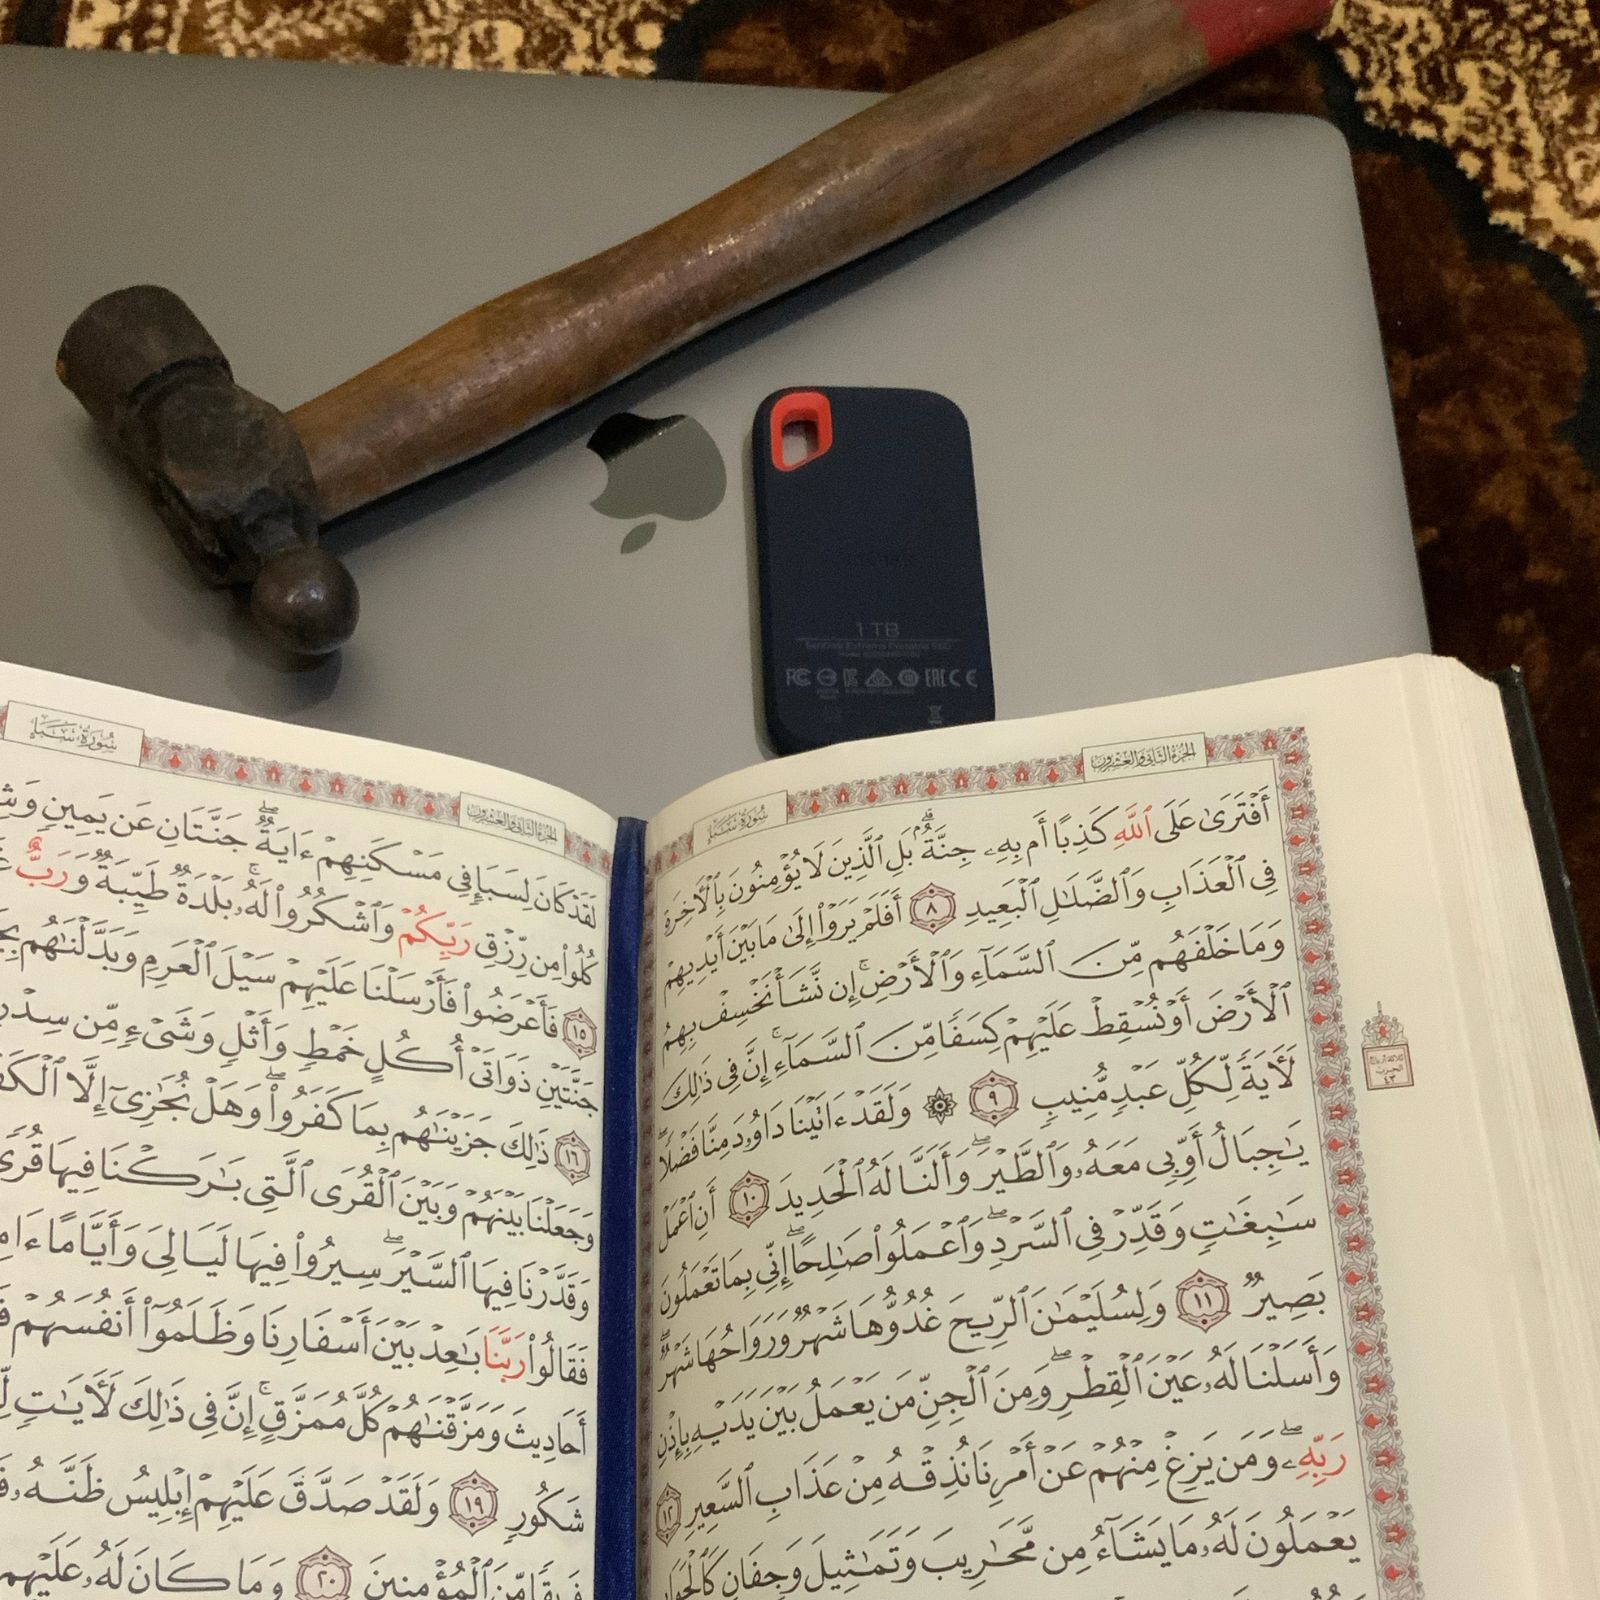 1 TB
SanDisk Extreme Portable SSD
FC CE
الجزء الثاني والعشرون
سورة سبإ
أَفۡتَرَىٰ عَلَى ٱللَّهِ كَذِبًا أَم بِهِۦ جِنَّةُۢۗ بَلِ ٱلَّذِينَ لَا يُؤۡمِنُونَ بِٱلۡأٓخِرَةِ
فِي ٱلۡعَذَابِ وَٱلضَّلَٰلِ ٱلۡبَعِيدِ ٨ أَفَلَمۡ يَرَوۡاْ إِلَىٰ مَا بَيۡنَ أَيۡدِيهِمۡ
وَمَا خَلۡفَهُم مِّنَ ٱلسَّمَآءِ وَٱلۡأَرۡضِۚ إِن نَّشَأۡ نَخۡسِفۡ بِهِمُ
ٱلۡأَرۡضَ أَوۡ نُسۡقِطۡ عَلَيۡهِمۡ كِسَفٗا مِّنَ ٱلسَّمَآءِۚ إِنَّ فِي ذَٰلِكَ
لَأٓيَةٗ لِّكُلِّ عَبۡدٖ مُّنِيبٖ ٩ ۞ وَلَقَدۡ ءَاتَيۡنَا دَاوُۥدَ مِنَّا فَضۡلٗاۖ
يَٰجِبَالُ أَوِّبِي مَعَهُۥ وَٱلطَّيۡرَۖ وَأَلَنَّا لَهُ ٱلۡحَدِيدَ ١٠ أَنِ ٱعۡمَلۡ
سَٰبِغَٰتٖ وَقَدِّرۡ فِي ٱلسَّرۡدِۖ وَٱعۡمَلُواْ صَٰلِحًاۖ إِنِّي بِمَا تَعۡمَلُونَ
بَصِيرٞ ١١ وَلِسُلَيۡمَٰنَ ٱلرِّيحَ غُدُوُّهَا شَهۡرٞ وَرَوَاحُهَا شَهۡرٞۖ
وَأَسَلۡنَا لَهُۥ عَيۡنَ ٱلۡقِطۡرِۖ وَمِنَ ٱلۡجِنِّ مَن يَعۡمَلُ بَيۡنَ يَدَيۡهِ بِإِذۡنِ
رَبِّهِۦۖ وَمَن يَزِغۡ مِنۡهُمۡ عَنۡ أَمۡرِنَا نُذِقۡهُ مِنۡ عَذَابِ ٱلسَّعِيرِ ١٢
يَعۡمَلُونَ لَهُۥ مَا يَشَآءُ مِن مَّحَٰرِيبَ وَتَمَٰثِيلَ وَجِفَانٖ كَٱلۡجَوَابِ
ثلاثة أرباع
الحزب
٤٣
الجزء الثاني والعشرون
سورة سبإ
لَقَدۡ كَانَ لِسَبَإٖ فِي مَسۡكَنِهِمۡ ءَايَةٞۖ جَنَّتَانِ عَن يَمِينٖ
كُلُواْ مِن رِّزۡقِ رَبِّكُمۡ وَٱشۡكُرُواْ لَهُۥۚ بَلۡدَةٞ طَيِّبَةٞ وَرَبٌّ
١٥ فَأَعۡرَضُواْ فَأَرۡسَلۡنَا عَلَيۡهِمۡ سَيۡلَ ٱلۡعَرِمِ وَبَدَّلۡنَٰهُم
جَنَّتَيۡنِ ذَوَاتَيۡ أُكُلٍ خَمۡطٖ وَأَثۡلٖ وَشَيۡءٖ مِّن سِدۡرٖ
١٦ ذَٰلِكَ جَزَيۡنَٰهُم بِمَا كَفَرُواْۖ وَهَلۡ نُجَٰزِيٓ إِلَّا
وَجَعَلۡنَا بَيۡنَهُمۡ وَبَيۡنَ ٱلۡقُرَى ٱلَّتِي بَٰرَكۡنَا فِيهَا قُرٗى
وَقَدَّرۡنَا فِيهَا ٱلسَّيۡرَۖ سِيرُواْ فِيهَا لَيَالِيَ وَأَيَّامًا
فَقَالُواْ رَبَّنَا بَٰعِدۡ بَيۡنَ أَسۡفَارِنَا وَظَلَمُوٓاْ أَنفُسَهُمۡ
أَحَادِيثَ وَمَزَّقۡنَٰهُمۡ كُلَّ مُمَزَّقٍۚ إِنَّ فِي ذَٰلِكَ لَأٓيَٰتٖ
شَكُورٖ ١٩ وَلَقَدۡ صَدَّقَ عَلَيۡهِمۡ إِبۡلِيسُ ظَنَّهُۥ
فَرِيقٗا مِّنَ ٱلۡمُؤۡمِنِينَ ٢٠ وَمَا كَانَ لَهُۥ عَلَيۡهِم